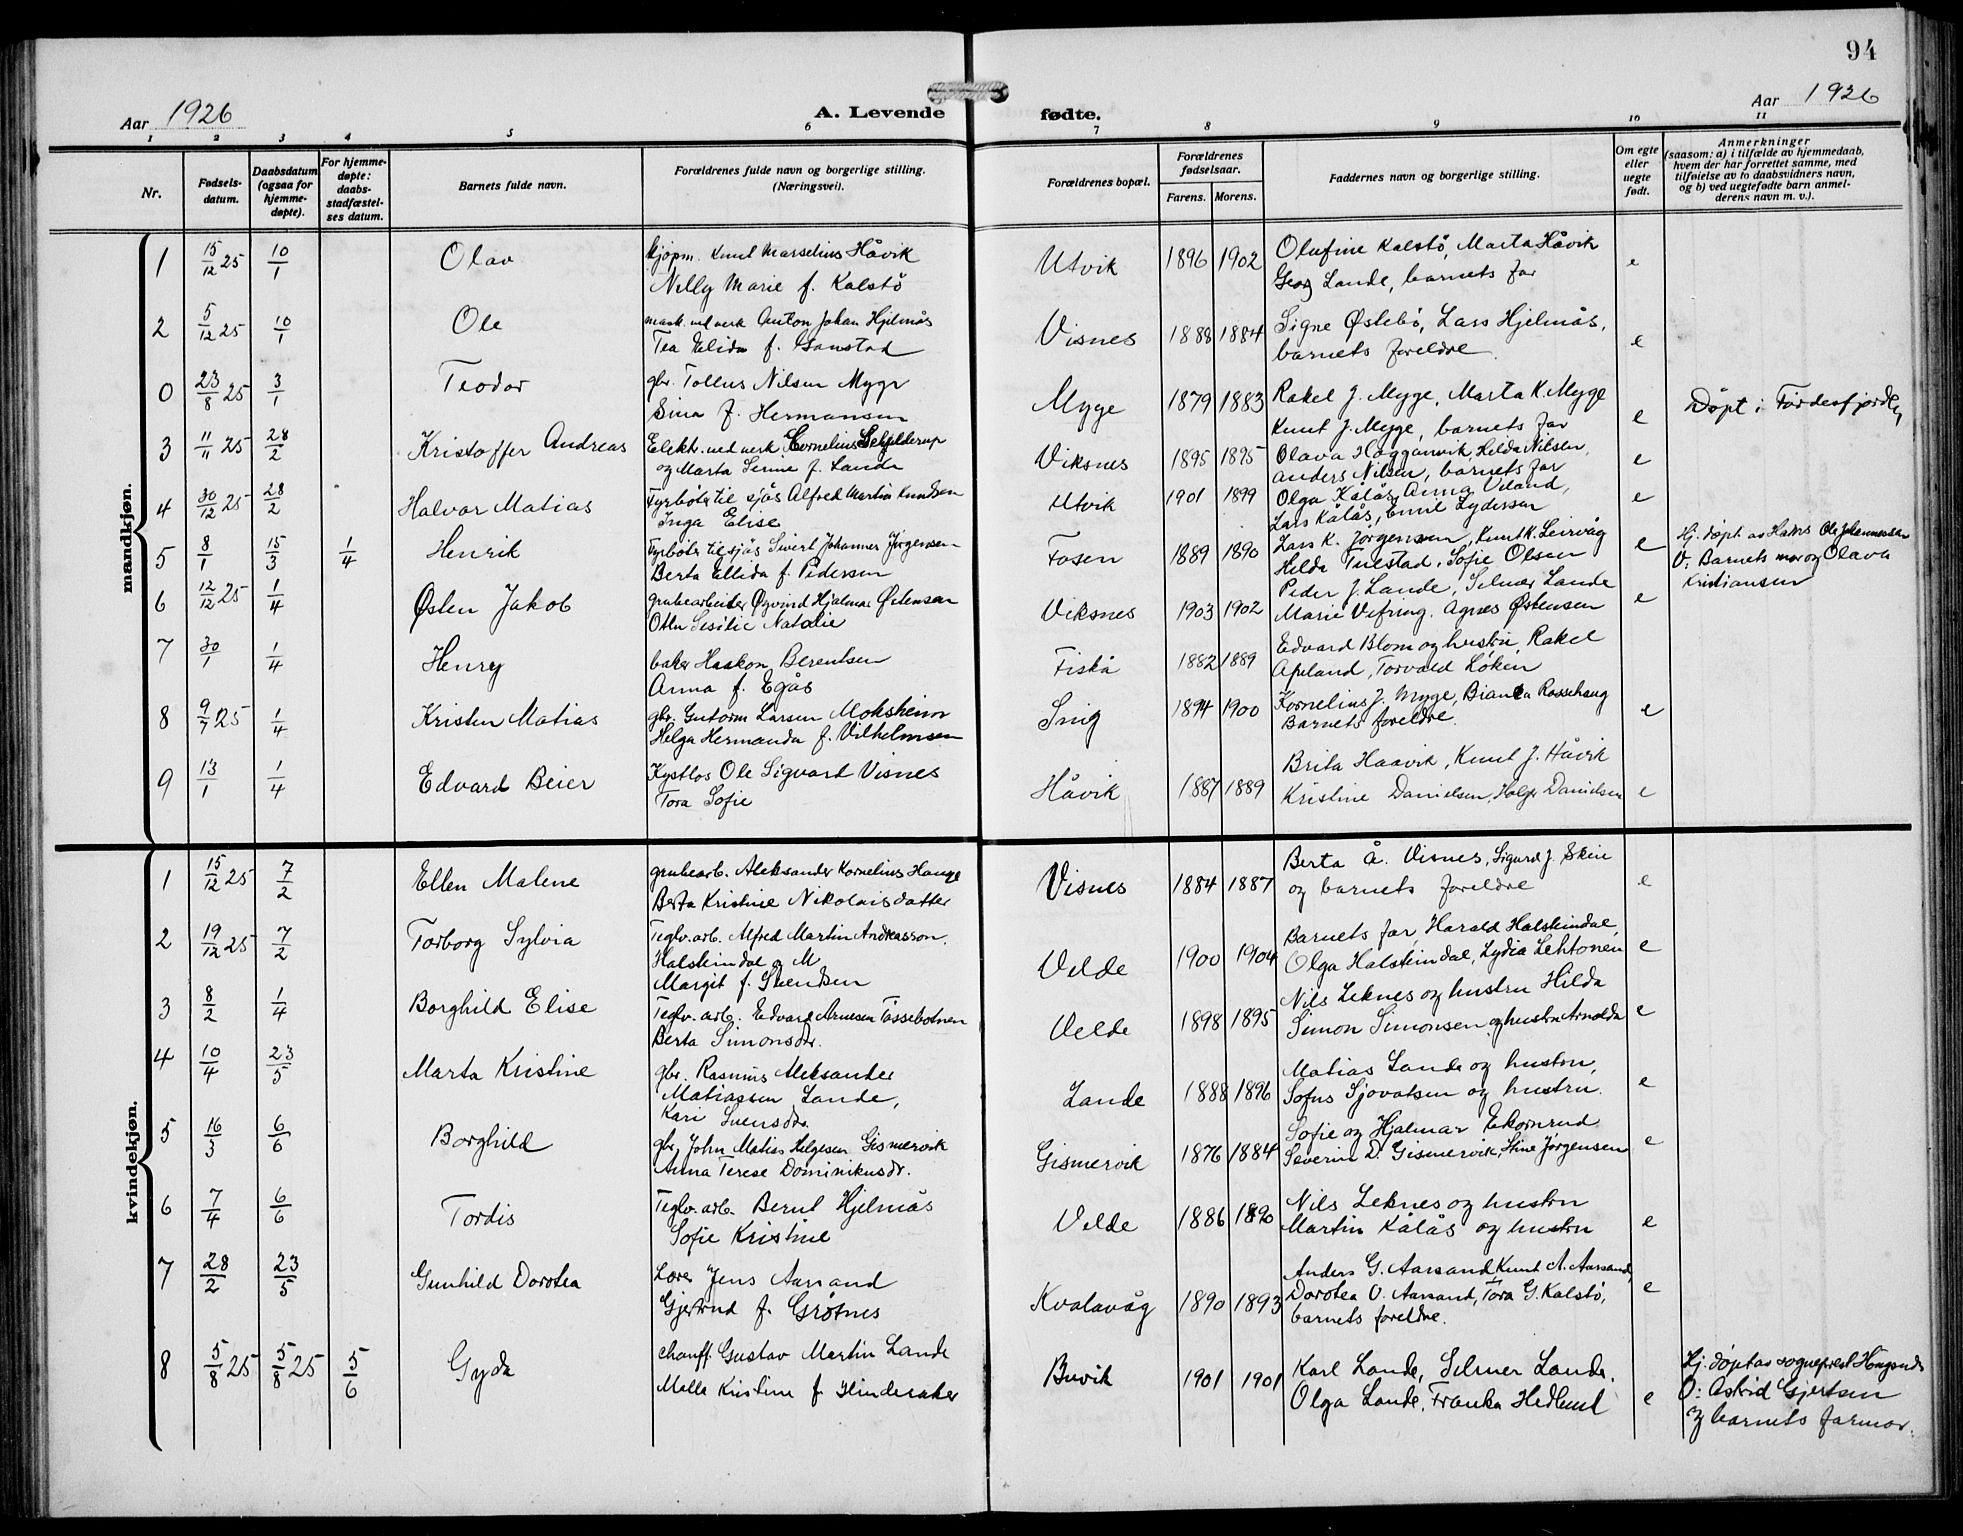 94
Aar 1926
A. Levende fødte.
Aar 1926
1 2 3 4 5 6 7 8 9 10 11
Nr.
Fødsels-
datum.
Daabsdatum
(ogsaa for
hjemme-
døpte).
For hjemme-
døpte:
daabs-
stadfæstel-
ses datum.
Barnets fulde navn.
Forældrenes fulde navn og borgerlige stilling.
(Næringsvei).
Forældrenes bopæl.
Forældrenes
fødselsaar.
Farens. Morens.
Faddernes navn og borgerlige stilling.
Om egte
eller
uegte
født.
Anmerkninger
(saasom: a) i tilfælde av hjemmedaab,
hvem der har forrettet samme, med
tilføielse av to daabsvidners navn,
og b) ved uegtefødte barn anmel-
derens navn m. v.).
mandkjøn.
1 15/12 25 10/1 Olav kjøpm. Knut Marselius Håvik Utvik 1896 1902 Olufine Kalstö, Marta Håvik e
Nelly Marie f. Kalstö Georg Lande, barnets far
2 5/12 25 10/1 Ole mask. ved verk Anton Johan Hjelmås Visnes 1888 1884 Signe Østebö, Lars Hjelmås, e
Tea Elida f. Ganstad barnets foreldre
0 23/8 25 3/1 Teodor gbr. Tollus Nilsen Myge Mygge 1879 1883 Rakel J. Mygge, Marta K. Mygge e Döpt i Fördesfjorden
Sina f. Hermansen Knut J. Mygge, barnets far
3 11/11 25 28/2 Kristoffer Andreas Elektr. ved verk Cornelius Schjelderup Viksnes 1895 1895 Olava Hagganvik, Helda Nilsen, e
og Marta Serine f. Lande Anders Nilsen, barnets far
4 30/12 25 28/2 Halvor Matias Fyrböter til sjös Alfred Martin Knudsen Utvik 1901 1899 Olga Kålås, Anna Veland, e
Inga Elise Lars Kålås, Emil Lydersen
5 8/1 15/3 1/4 Henrik Fyrböter til sjös Sivert Johannes Jörgensen Fosen 1889 1890 Lars K. Jörgensen, Knut K. Leirvåg e Hj. döpt av Hans Ole Johannessen
Berta Ellida f. Pedersen Helda Tuestad, Sofie Olsen V: Barnets mor og Olava
Kristiansen
6 12/12 25 1/4 Østen Jakob grubearbeider Øyvind Hjalmar Østensen Viksnes 1903 1902 Peder J. Lande, Selmer Lande e
Otlu Sesilie Natalie Marie Vefring, Agnes Østensen
7 30/1 1/4 Henry baker Haakon Berentsen Fiskå 1882 1889 Edvard Blom og hustru, Rakel
Anna f. Egås Apeland, Torvald Löken
8 9/7 25 1/4 Kristen Matias gbr. Gutorm Larsen Moksheim Snig 1894 1900 Kornelius J. Mygge, Bianca Rossehaug e
Helga Hermanda f. Vilhelmsen Barnets foreldre.
9 13/1 1/4 Edvard Beier Kystlos Ole Sigvart Visnes Håvik 1887 1889 Brita Haavik, Knut J. Håvik e
Tora Sofie Kristine Danielsen, Holger Danielsen
kvindekjøn.
1 15/12 25 7/2 Ellen Malene grubearb. Aleksander Kornelius Hauge Visnes 1884 1887 Berta Å. Visnes, Sigurd J. Skeie e
Berta Kristine Nikolaisdatter og barnets foreldre
2 19/12 25 7/2 Torborg Sylvia Teglv. arb. Alfred Martin Andreasson Velde 1900 1904 Barnets far, Harald Halsteindal, e
Halsteindal o M Olga Halsteindal, Lydia Lehtonen
Margit f. Svendsen
3 8/2 1/4 Borghild Elise Teglv. arb. Edvard Arnesen Tössebotnen Velde 1898 1895 Nils Leknes og hustru Hilda e
Berta Simonsdr. Simon Simonsen og hustru Arnolda
4 10/4 23/5 Marta Kristine gbr. Rasmus Aleksander Lande 1888 1896 Matias Lande og hustru, e
Matiassen Lande, Sofus Sjovatsen og hustru.
Kari Svensdr.
5 16/3 6/6 Borghild gbr. John Matias Helgesen Gismervik Gismervik 1876 1884 Sofie og Hjalmar Ekornrud e
Anna Terese Dominikusdr. Severin D. Gismervik, Stine Jörgensen
6 7/4 6/6 Tordis Teglv. arb. Bernt Hjelmås Velde 1886 1890 Nils Leknes og hustru e
Sofie Kristine Martin Kålås og hustru
7 28/2 23/5 Gunhild Dorotea Lærer Jens Aarsand Kvalavåg 1890 1893 Anders G. Aarsand, Knut A. Aarsand, e
Gjertrud f. Grötnes Dorotea O. Aarsand, Tora G. Kalstö,
barnets foreldre.
8 5/8 25 5/8 25 5/6 Gyda Chauff. Gustav Martin Lande Buvik 1901 1901 Karl Lande, Selmer Lande, e Hj. döpt av sogneprest Haugsneds
Malla Kristine f. Hinderaker Olga Lande, Franka Hedlund V: Astrid Gjertsen
og barnets farmor.